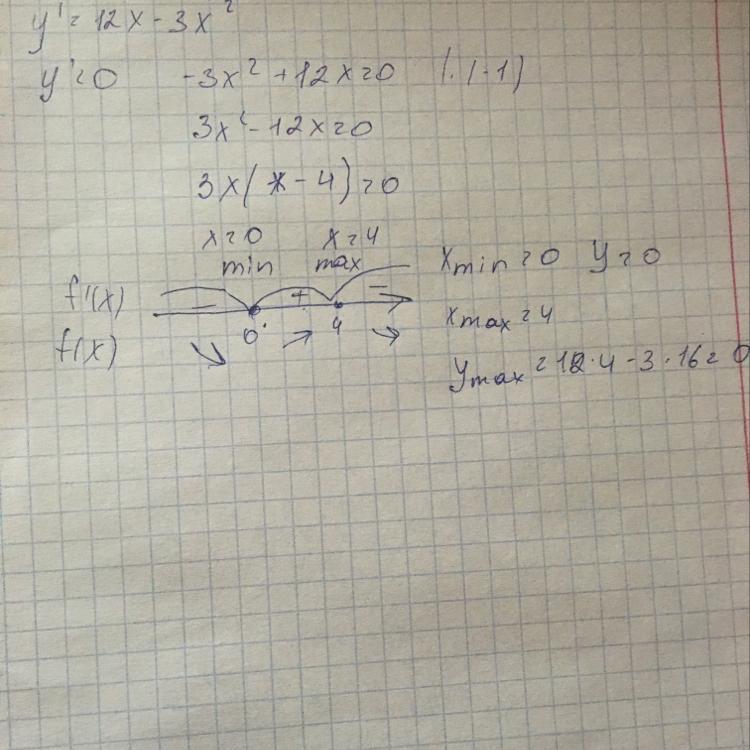 y' = 12x - 3x²
y' = 0 -3x² + 12x = 0 |·(-1)
3x² - 12x = 0
3x(x - 4) = 0
x = 0 x = 4
min max
f'(x) - + -
0 4
f(x) ↘ ↗ ↘
xmin = 0 y = 0
xmax = 4
ymax = 12·4 - 3·16 = 0